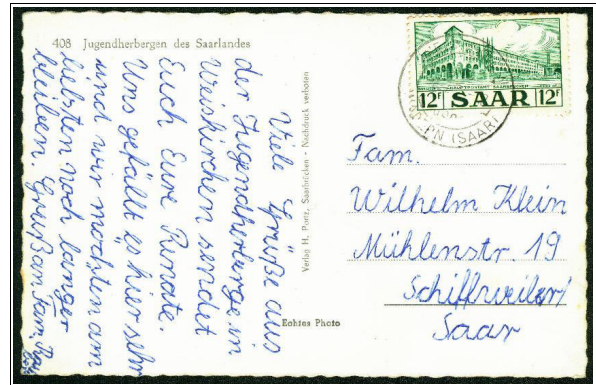 408 Jugendherbergen des Saarlandes
Viele Grüße aus
der Jugendherberge in
Weiskirchen sendet
Euch Eure Renate.
Uns gefällt es hier sehr
und wir möchten am
liebsten noch länger
bleiben. Gruß an Fam.
Verlag H. Portz, Saarbrücken - Nachdruck verboten
Echtes Photo
12F SAAR 12F
(SAAR)
Fam.
Wilhelm Klein
Mühlenstr. 19
Schiffweiler/
Saar